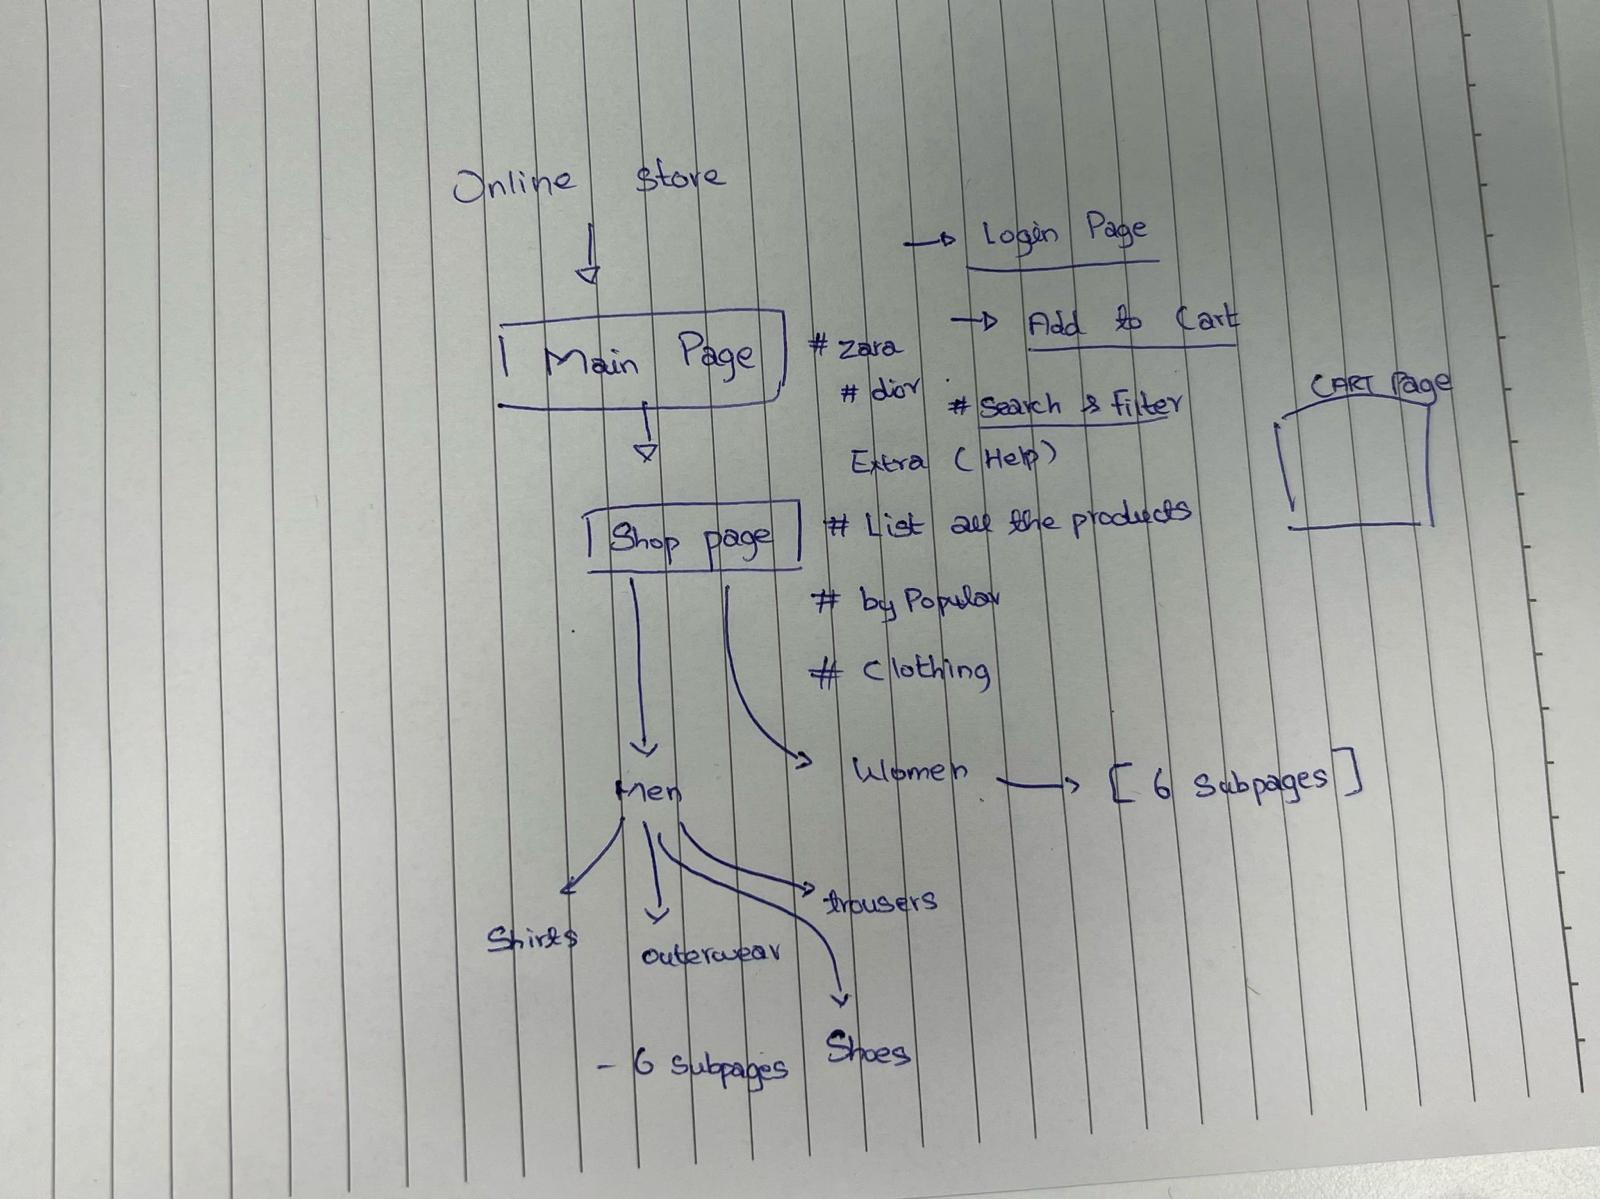 Online store
Login Page
Add to Cart
Main Page
# zara
# dior
# Search & Filter
CART Page
Extra (Help)
Shop page
# List all the products
# by Popular
# Clothing
Men
Women
[ 6 Subpages ]
Shirts
outerwear
trousers
Shoes
- 6 Subpages